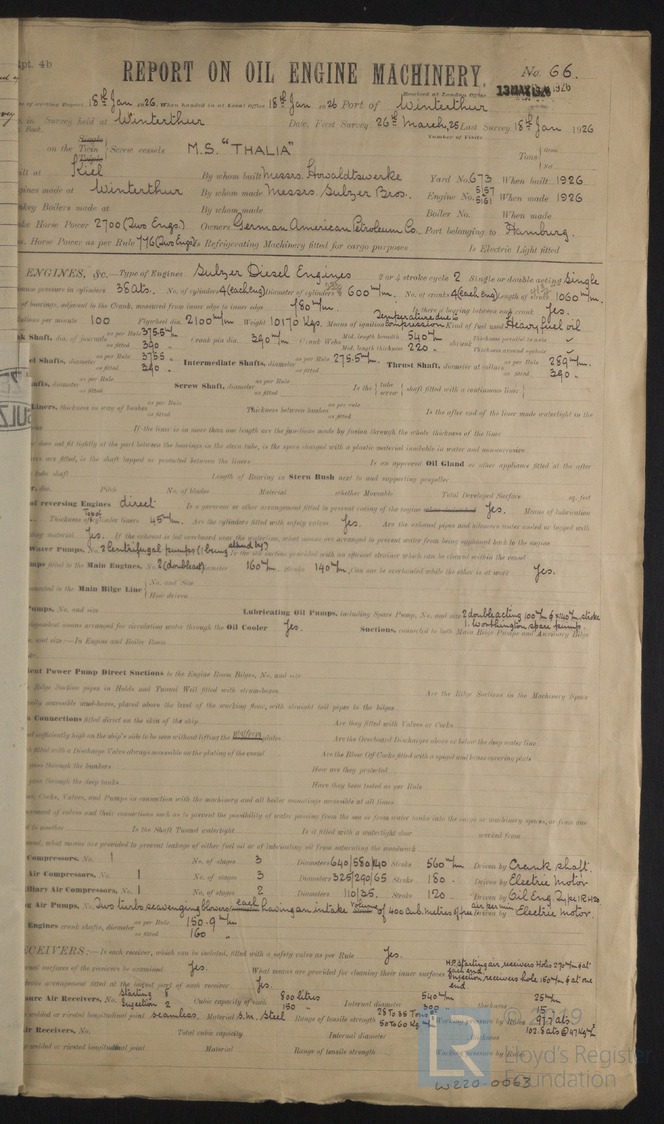 pt. 4b
REPORT ON OIL ENGINE MACHINERY.
No. 66.
Received at London Office 13 MAY 1926
18th Jan 1926. When handed in at Local Office 18th Jan 1926 Port of Winterthur
Survey held at Winterthur Date, First Survey 26th March, 25 Last Survey 18th Jan 1926
Number of Visits
on the Single Twin Triple Screw vessels M.S. "THALIA" Tons Gross Net
Kiel By whom built Messrs. Howaldtswerke Yard No. 673 When built 1926
made at Winterthur By whom made Messrs. Sulzer Bros. Engine No. 5157 5161 When made 1926
Boilers made at By whom made Boiler No. When made
Horse Power 2700 (Two Engs.) Owners German American Petroleum Co. Port belonging to Hamburg
Horse Power as per Rule 776 (Two Engs) Is Refrigerating Machinery fitted for cargo purposes Is Electric Light fitted
ENGINES, &c.—Type of Engines Sulzer Diesel Engines 2 or 4 stroke cycle 2 Single or double acting Single
pressure in cylinders 38 ats. No. of cylinders 4 (each eng) Diameter of cylinders 600 m/m. No. of cranks 4 (each eng) Length of stroke 1060 m/m.
of bearings, adjacent to the Crank, measured from inner edge to inner edge 780 m/m Is there a bearing between each crank Yes.
per minute 100 Flywheel dia. 2100 m/m Weight 10170 Kgs. Means of ignition Temperature due to compression Kind of fuel used Heavy fuel oil
Shaft, dia. of journals as per Rule 375.5 m/m as fitted 390 Crank pin dia. 390 m/m Crank Webs Mid. length breadth 540 m/m Mid. length thickness 220 Thickness parallel to axis Thickness around eyehole
Shafts, diameter as per Rule 375.5 as fitted 390 Intermediate Shafts, diameter as per Rule 275.5 m/m as fitted Thrust Shaft, diameter at collars as per Rule 289 m/m as fitted 390
Shafts, diameter as per Rule as fitted Screw Shaft, diameter as per Rule as fitted Is the tube screw shaft fitted with a continuous liner
Liners, thickness in way of bushes as per Rule as fitted Thickness between bushes as per Rule as fitted Is the after end of the liner made watertight in the
If the liner is in more than one length are the junctions made by fusion through the whole thickness of the liner
does not fit tightly at the part between the bearings in the stern tube, is the space charged with a plastic material insoluble in water and non-corrosive
are fitted, is the shaft lapped or protected between the liners Is an approved Oil Gland or other appliance fitted at the after
tube shaft Length of Bearing in Stern Bush next to and supporting propeller
dia. Pitch No. of blades Material whether Moveable Total Developed Surface sq. feet
of reversing Engines direct Is a governor or other arrangement fitted to prevent racing of the engine Yes. Means of lubrication
Thickness of cylinder liners 45 m/m. Are the cylinders fitted with safety valves Yes. Are the exhaust pipes and silencers water cooled or lagged with
material Yes. If the exhaust is led overboard near the waterline, what means are arranged to prevent water being syphoned back to the engine
Water Pumps, No. 2 Centrifugal pumps (1 being stand by)
to the Main Engines, No. 2 (double act) Diameter 160 m/m Stroke 140 m/m Can one be overhauled while the other is at work Yes.
connected to the Main Bilge Line No. and Size How driven
Pumps, No. and size Lubricating Oil Pumps, including Spare Pump, No. and size 2 double acting 100 m/m φ × 140 m/m stroke
1. Worthington spare pump.
means arranged for circulating water through the Oil Cooler Yes. Suctions, connected to both Main Bilge Pumps and Auxiliary Bilge
and size:—In Engine and Boiler Room
Power Pump Direct Suctions to the Engine Room Bilges, No. and size
Bilge Suction pipes in Holds and Tunnel Well fitted with strum-boxes Are the Bilge Suctions in the Machinery Space
accessible mud-boxes, placed above the level of the working floor, with straight tail pipes to the bilges
Connections fitted direct on the skin of the ship Are they fitted with Valves or Cocks
sufficiently high on the ship's side to be seen without lifting the platform plates Are the Overboard Discharges above or below the deep water line
fitted with a Discharge Valve always accessible on the plating of the vessel Are the Blow Off Cocks fitted with a spigot and brass covering plate
pass through the bunkers How are they protected
pass through the deep tanks Have they been tested as per Rule
Cocks, Valves, and Pumps in connection with the machinery and all boiler mountings accessible at all times
arrangement of valves and their connections such as to prevent the possibility of water passing from the sea or from water tanks into the cargo or machinery spaces, or from one
to another Is the Shaft Tunnel watertight Is it fitted with a watertight door worked from
vessel, what means are provided to prevent leakage of either fuel oil or of lubricating oil from saturating the woodwork
Compressors, No. 1 No. of stages 3 Diameters 640/580/140 Stroke 560 m/m Driven by Crank shaft.
Air Compressors, No. 1 No. of stages 3 Diameters 325/290/65 Stroke 180 Driven by Electric Motor
Air Compressors, No. 1 No. of stages 2 Diameters 110/35. Stroke 120 Driven by Oil Eng.
Air Pumps, No. Two turbo scavenging blowers each having an intake volume of 400 cub. metres of free air per min. Driven by Electric Motor.
Engines crank shafts, diameter as per Rule 150.9 m/m as fitted 160
RECEIVERS:—Is each receiver, which can be isolated, fitted with a safety valve as per Rule Yes.
surfaces of the receivers be examined Yes. What means are provided for cleaning their inner surfaces H.P. starting air receivers Holes 270 m/m φ at each end. Injection receivers hole 150 m/m φ at one end.
arrangement fitted at the lowest part of each receiver Yes.
Air Receivers, No. Starting 8 Injection 2 Cubic capacity of each 800 litres 150 Internal diameter 540 m/m 300 thickness 25 m/m 15
welded or riveted longitudinal joint seamless Material S.M. Steel Range of tensile strength 28 to 38 Tons 50 to 60 Kg Working pressure by Rules 97.7 ats 102.8 ats
Air Receivers, No. Total cubic capacity Internal diameter thickness
welded or riveted longitudinal joint Material Range of tensile strength Working pressure by Rules
© 2019
LR
Lloyd's Register
Foundation
W220-0063